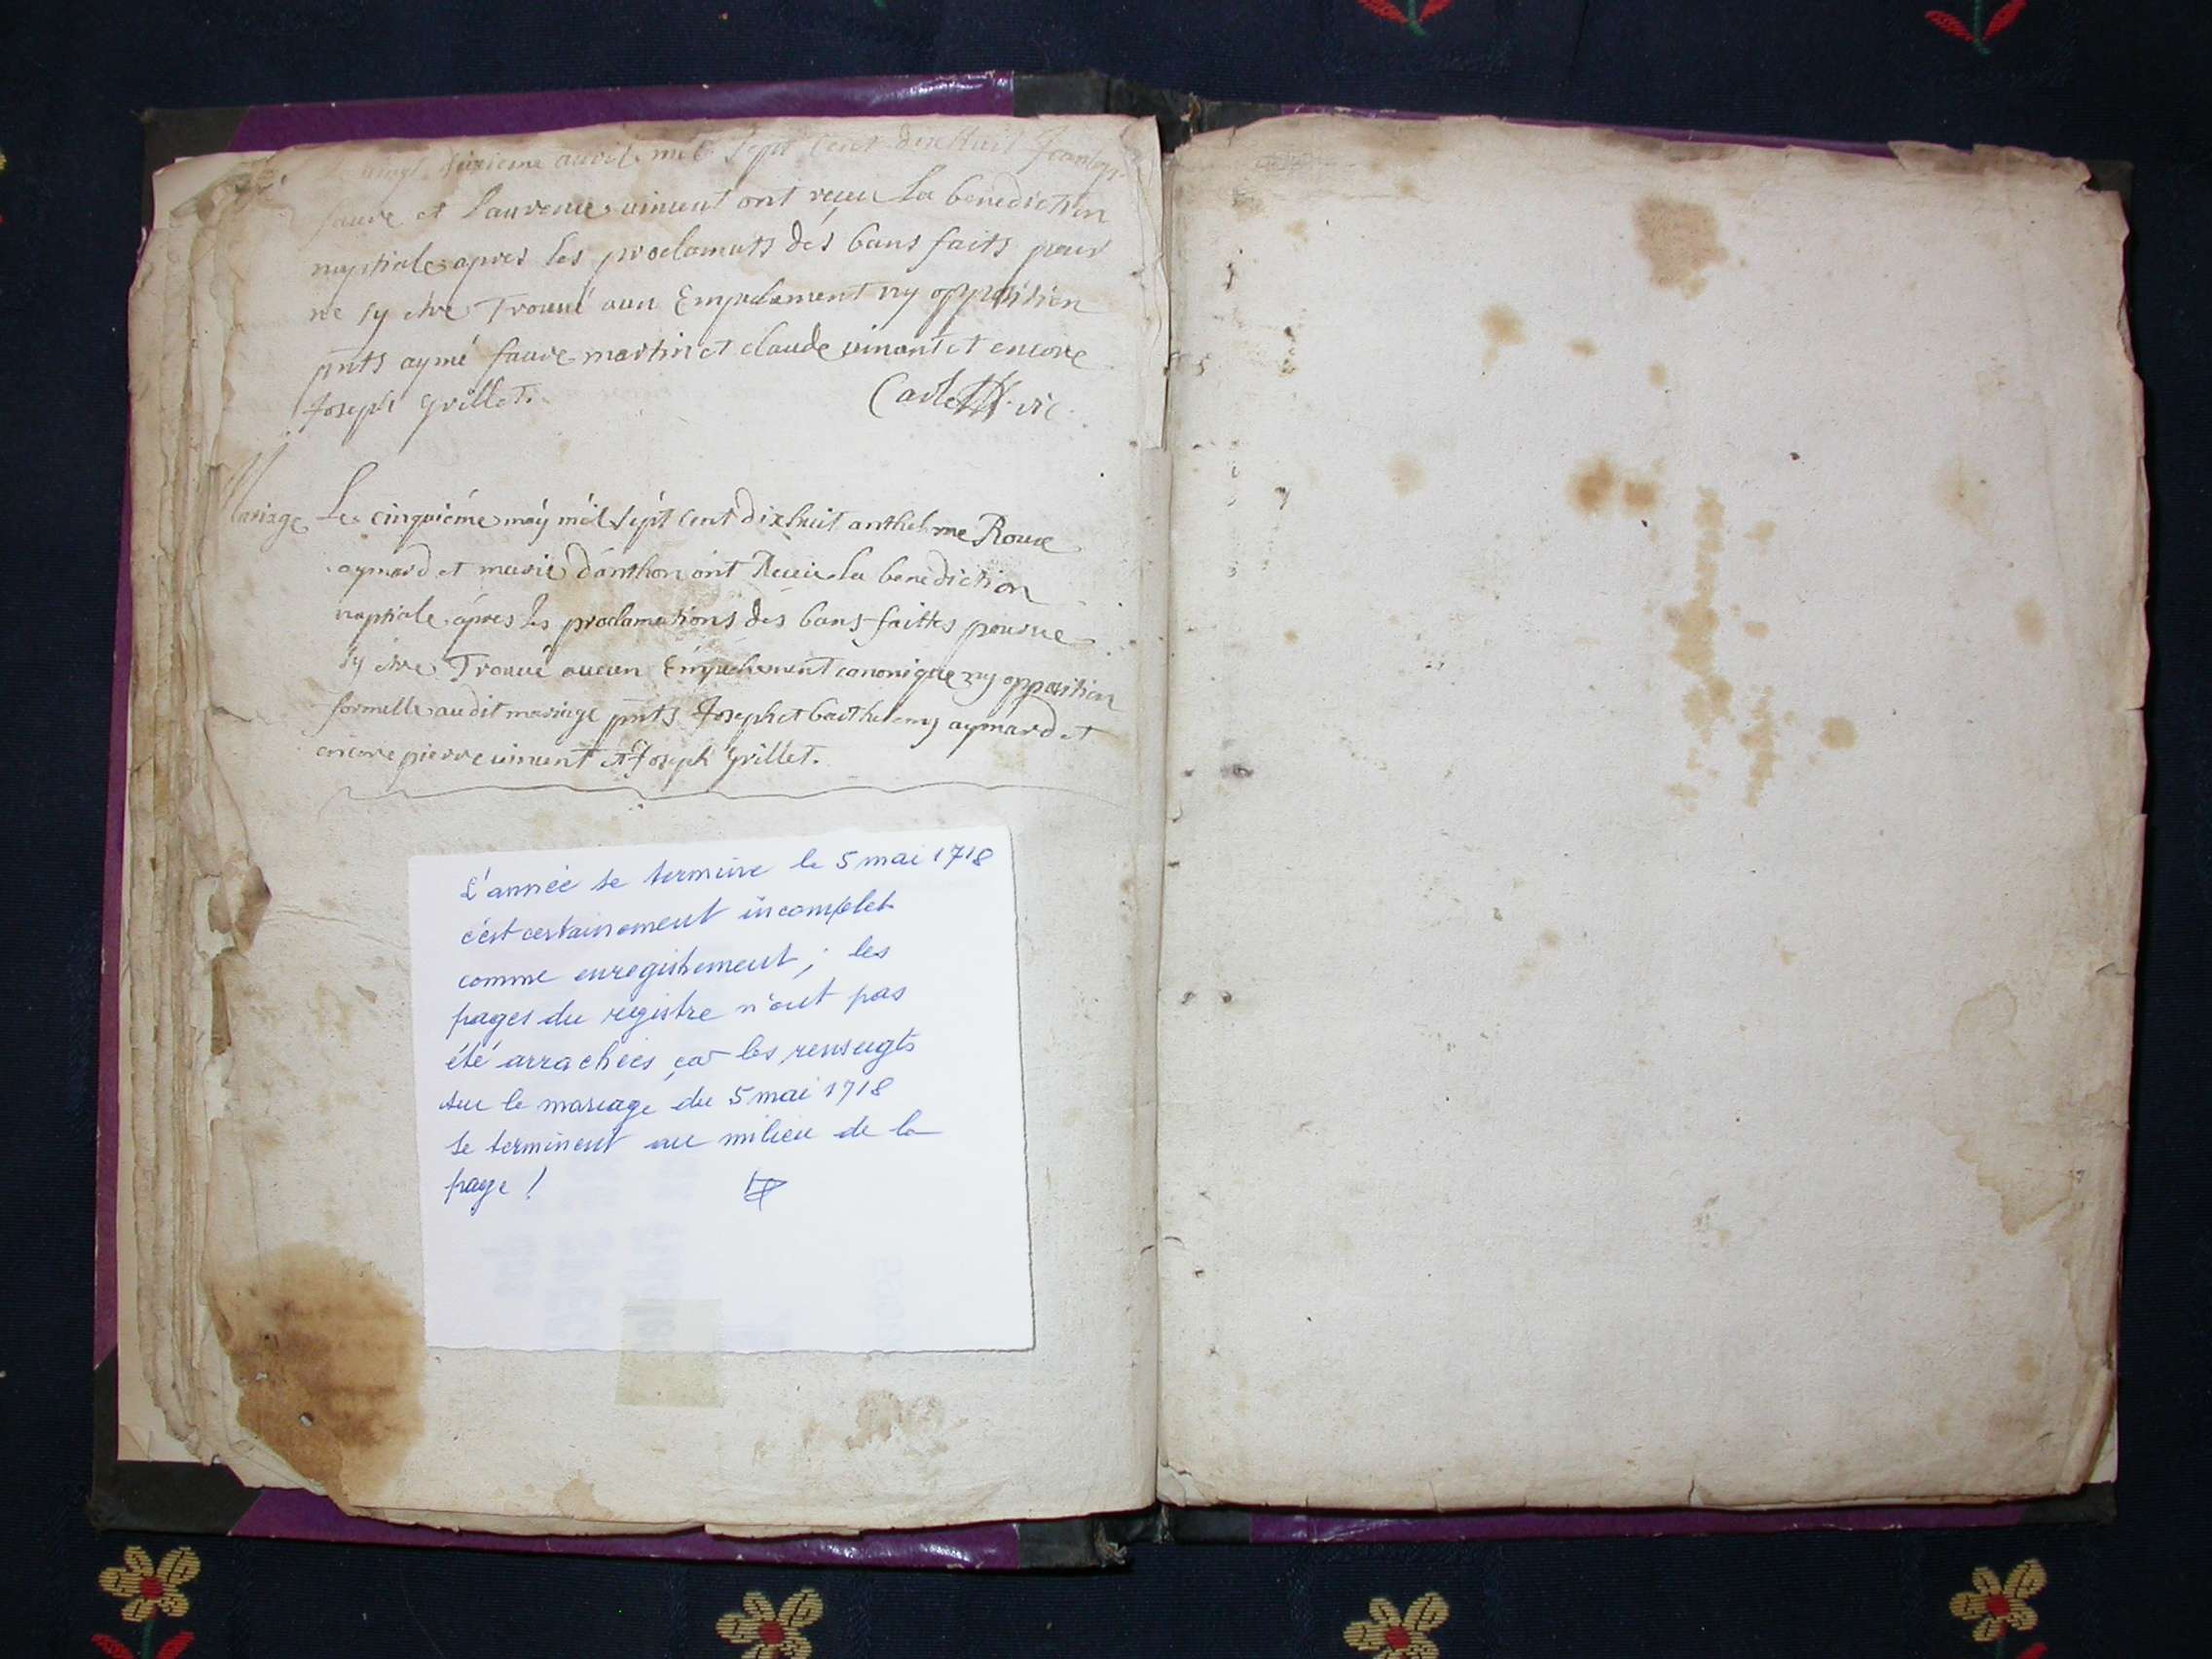 Le vingt sixieme avril mil sept cent dixhuit
faure et Laurence vincent ont receu La benediction
nuptiale apres les proclamats des bans faits pour
ne sy etre Trouvé aucu Empechement ny opposition
pnts aymé faure martin et claude vincent et encore
Joseph Grillet. vic.
Mariage Le cinquiéme may mil sept cent dixhuit anthelme Roux
aymard et marie danthon ont Receu La benediction
nuptiale apres les proclamations des bans faittes pour ne
sy etre Trouvé aucun Empechement canonique ny opposition
formelle audit mariage pnts Joseph et barthelemy aymard et
encore pierre vincent et Joseph Grillet.
L'année se termine le 5 mai 1718
c'est certainement incomplet
comme enregistrement ; les
pages du registre n'ont pas
été arrachées, car les renseigts
sur le mariage du 5 mai 1718
se terminent au milieu de la
page !